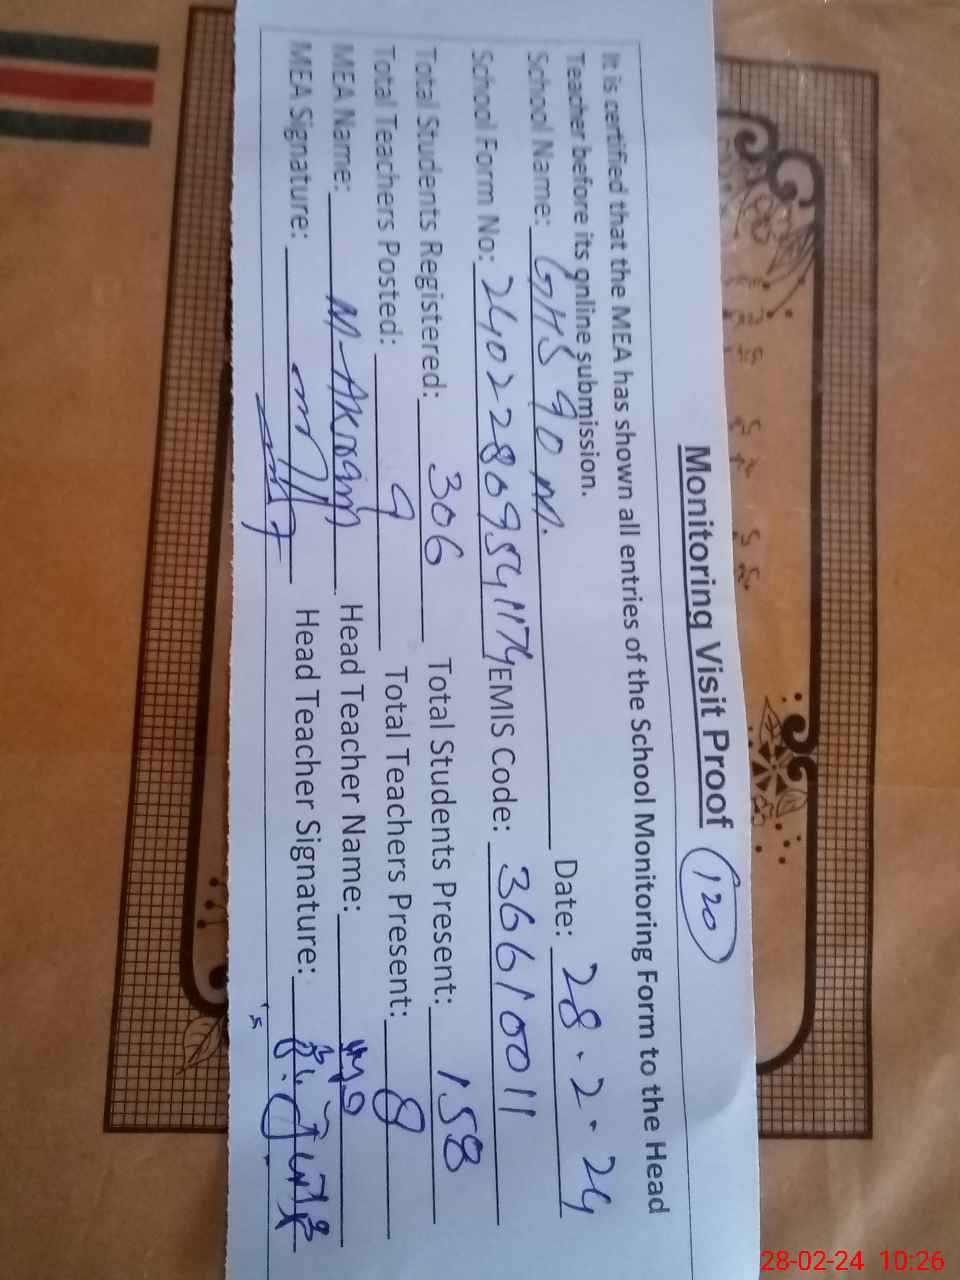 Monitoring Visit Proof 120
It is certified that the MEA has shown all entries of the School Monitoring Form to the Head
Teacher before its online submission.
School Name: GHS 90 M. Date: 28.2.24
School Form No: EMIS Code: 36610011
Total Students Registered: 306 Total Students Present: 158
Total Teachers Posted: 9 Total Teachers Present: 8
MEA Name: M-Akram Head Teacher Name:
MEA Signature: Head Teacher Signature:
28-02-24 10:26